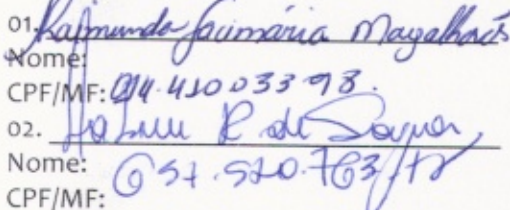 01. Raimunda Jacimária Magalhães
Nome:
CPF/MF: 014.410033 98.
02. R de
Nome:
CPF/MF: 657.520.763